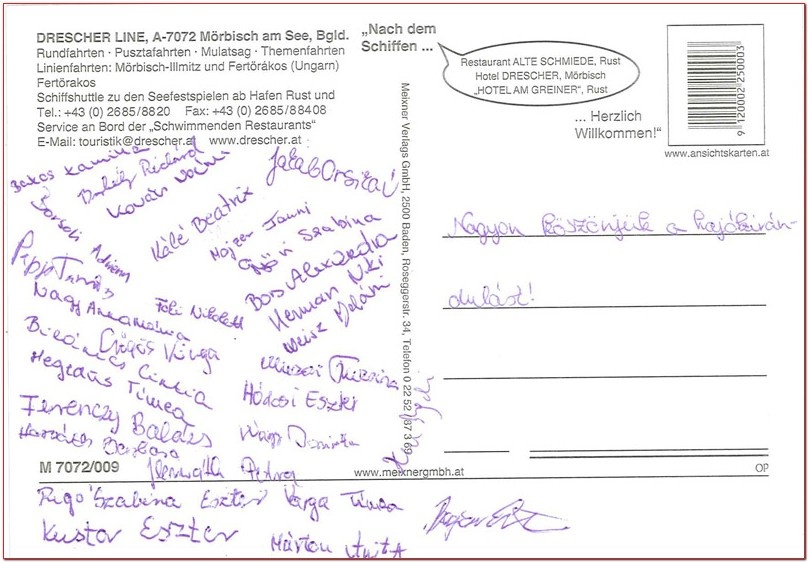 DRESCHER LINE, A-7072 Mörbisch am See, Bgld.
Rundfahrten · Pusztafahrten · Mulatsag · Themenfahrten
Linienfahrten: Mörbisch-Illmitz und Fertörákos (Ungarn)
Fertörakos
Schiffshuttle zu den Seefestspielen ab Hafen Rust und
Tel.: +43 (0) 2685/8820 Fax: +43 (0) 2685/88408
Service an Bord der „Schwimmenden Restaurants"
E-Mail: touristik@drescher.at www.drescher.at
„Nach dem
Schiffen ...
Restaurant ALTE SCHMIEDE, Rust
Hotel DRESCHER, Mörbisch
„HOTEL AM GREINER", Rust
... Herzlich
Willkommen!"
9 120002 250003
www.ansichtskarten.at
Meixner Verlags GmbH, 2500 Baden, Roseggerstr. 34, Telefon 0 22 52 / 87 3 69
Nagyon köszönjük a hajókirán-
dulást!
Bakos Kamilla
Richárd
Kovács
Jakab Orsitaú
Adrienn
Kálé Beatrix
Szabina
Papp Tamás
Bors Alexandra
Nagy Annamária
Herman Niki
Nikolett
Meisz Meláni
Csigás Virga
Cintia
Tímea
Hódosi Eszter
Ferenczy Balázs
Horváth Barbara
Petra
M 7072/009
www.meixnergmbh.at
OP
Rigó Szabina Eszter Varga Tímea
Kustor Eszter
Márton Anita